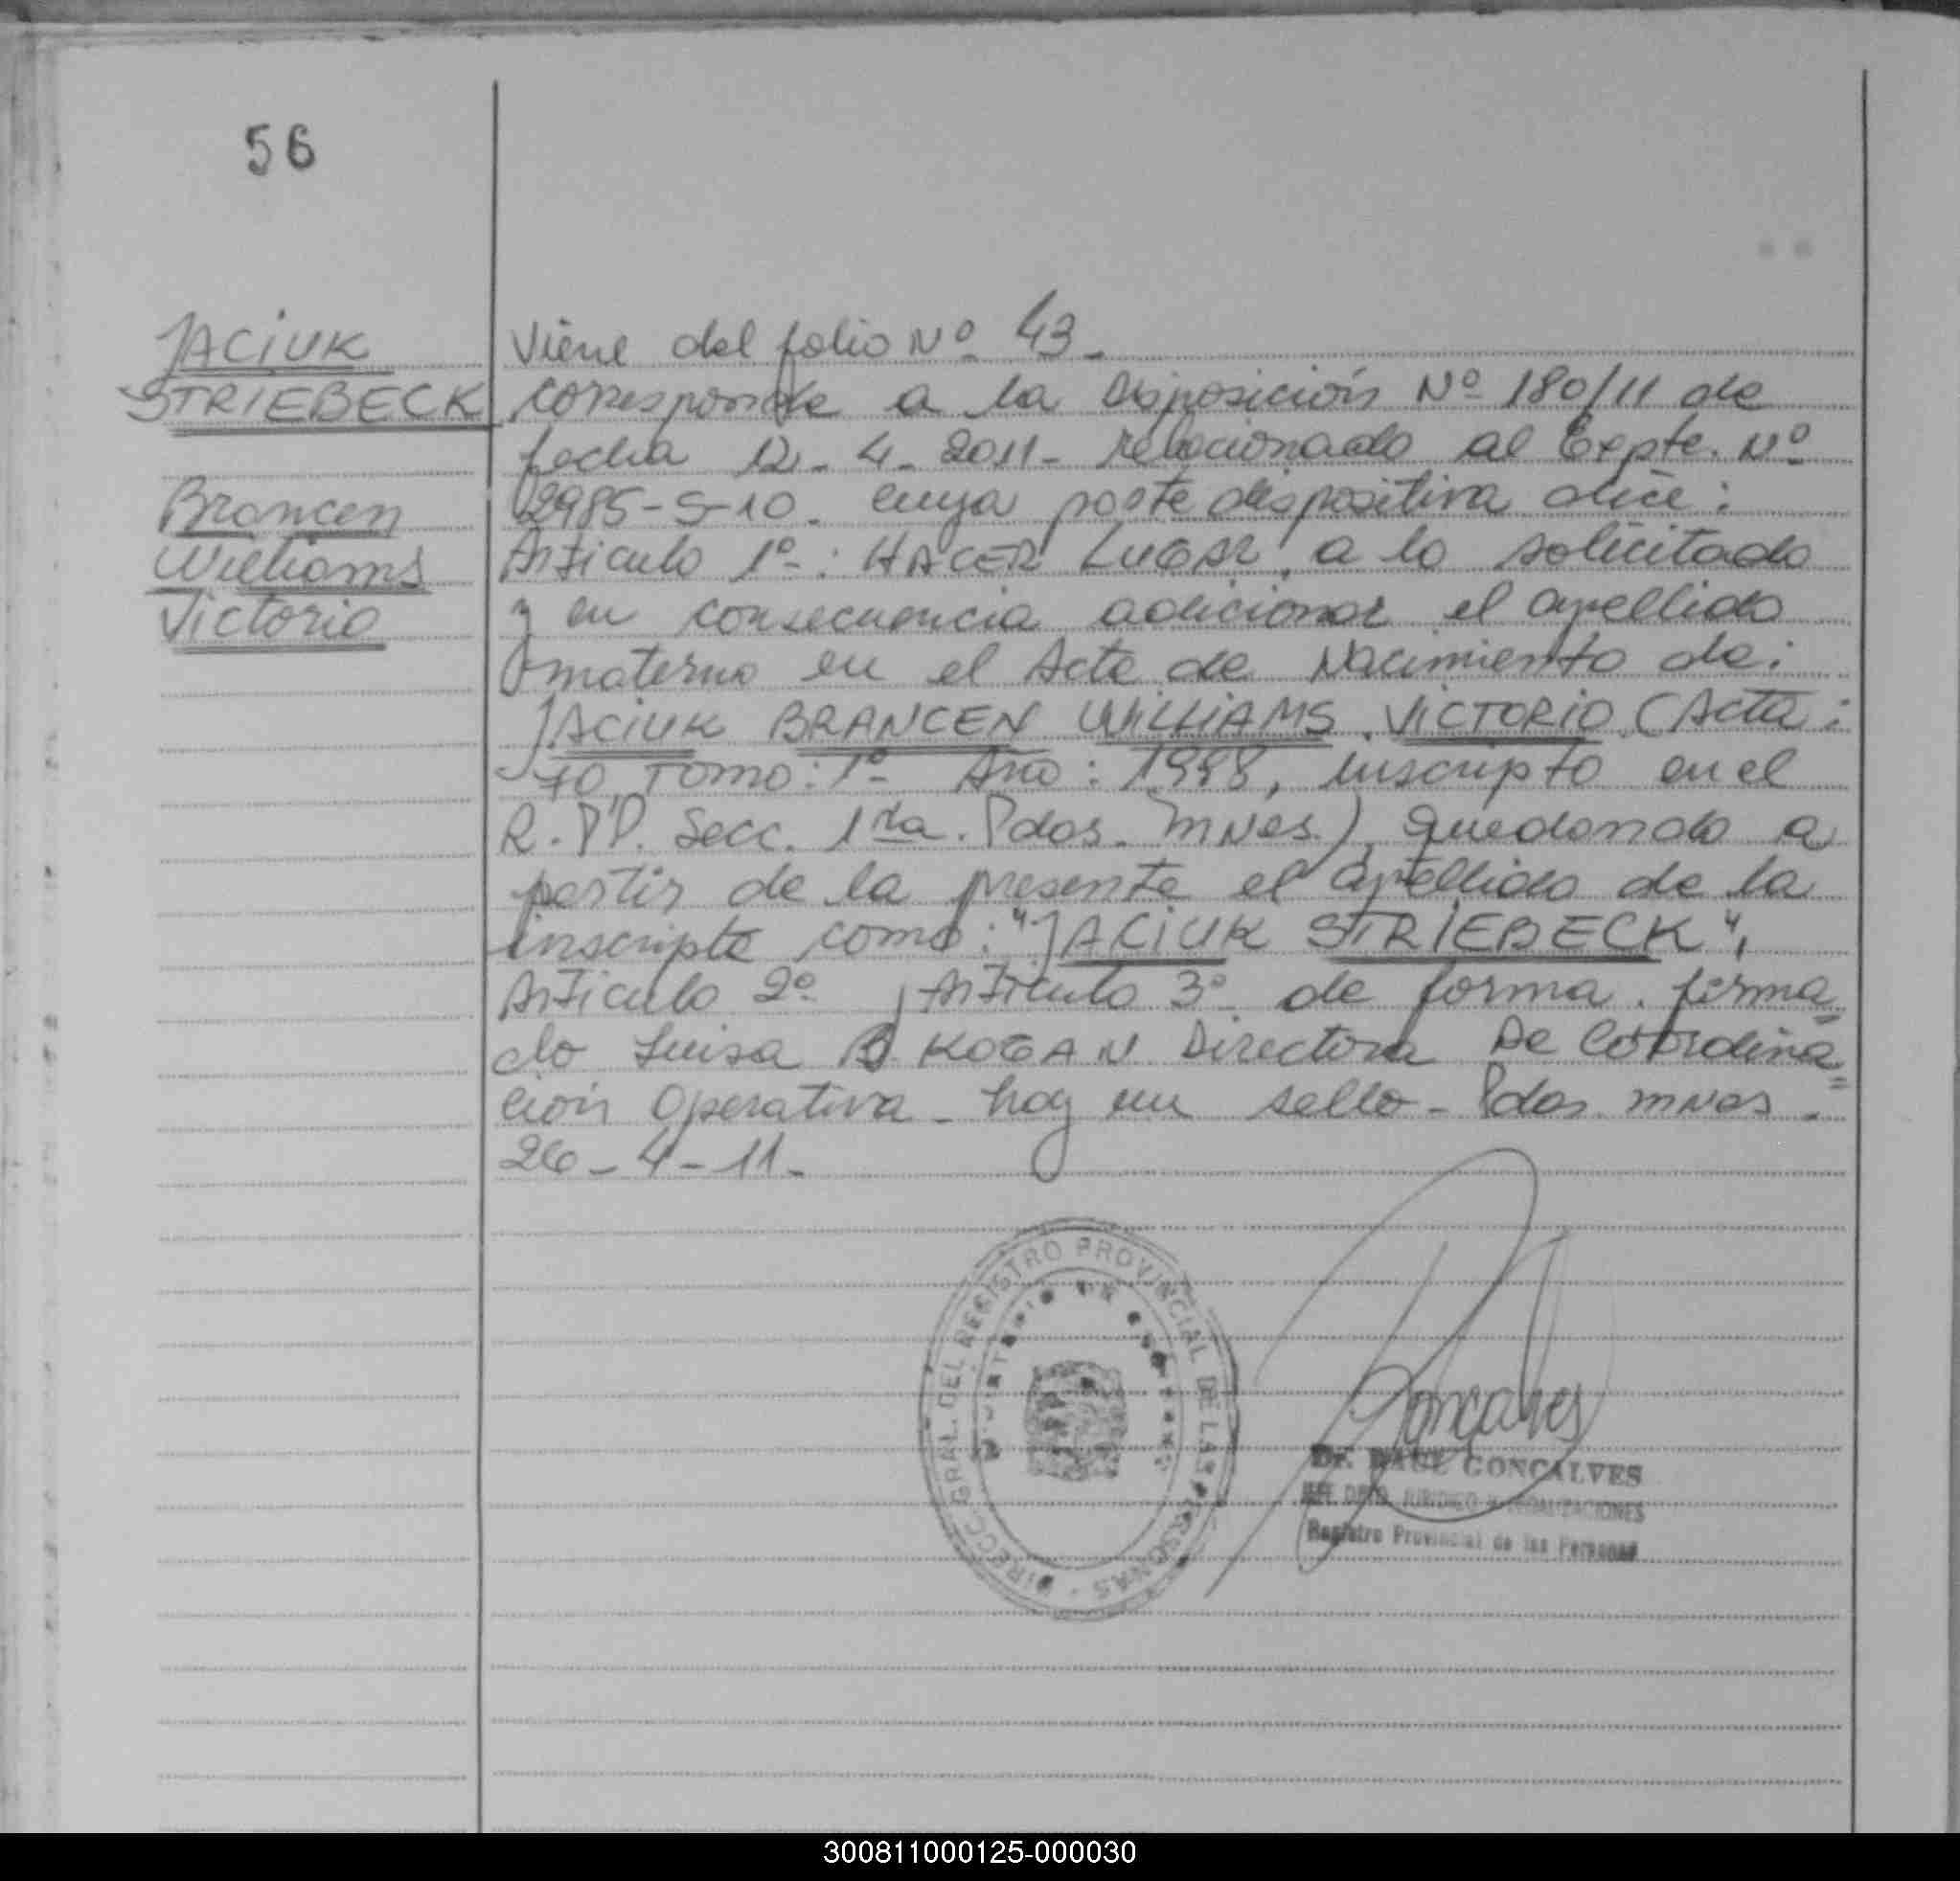 56
JACIUK
STRIEBECK
Brancen
Williams
Victorio
Viene del folio Nº 43-
corresponde a la Disposición Nº 180/11 de
fecha 12-4-2011- relacionado al Expte. Nº
2985-S-10. cuya parte dispositiva dice:
Articulo 1º-: HACER LUGAR, a lo solicitado
y en consecuencia adicionar el apellido
materno en el Acta de Nacimiento de:
JACIUK BRANCEN WILLIAMS VICTORIO (Acta:
70 Tomo: 1º- Año: 1998, inscripto en el
R.PP. Secc. 1ra. Pdas. Mnes.) quedando a
partir de la presente el apellido de la
inscripta como: "JACIUK STRIEBECK",
Articulo 2º- Articulo 3º de forma. firma=
do Luisa B KOGAN Directora De Coordina=
ción Operativa- hay un sello- Pdas. Mnes.
26-4-11-
DIRECC. GRAL. DEL REGISTRO PROVINCIAL DE LAS PERSONAS
Goncalves
Dr. RAUL GONCALVES
JEFE DPTO. JURIDICO Y LEGALIZACIONES
Registro Provincial de las Personas
300811000125-000030